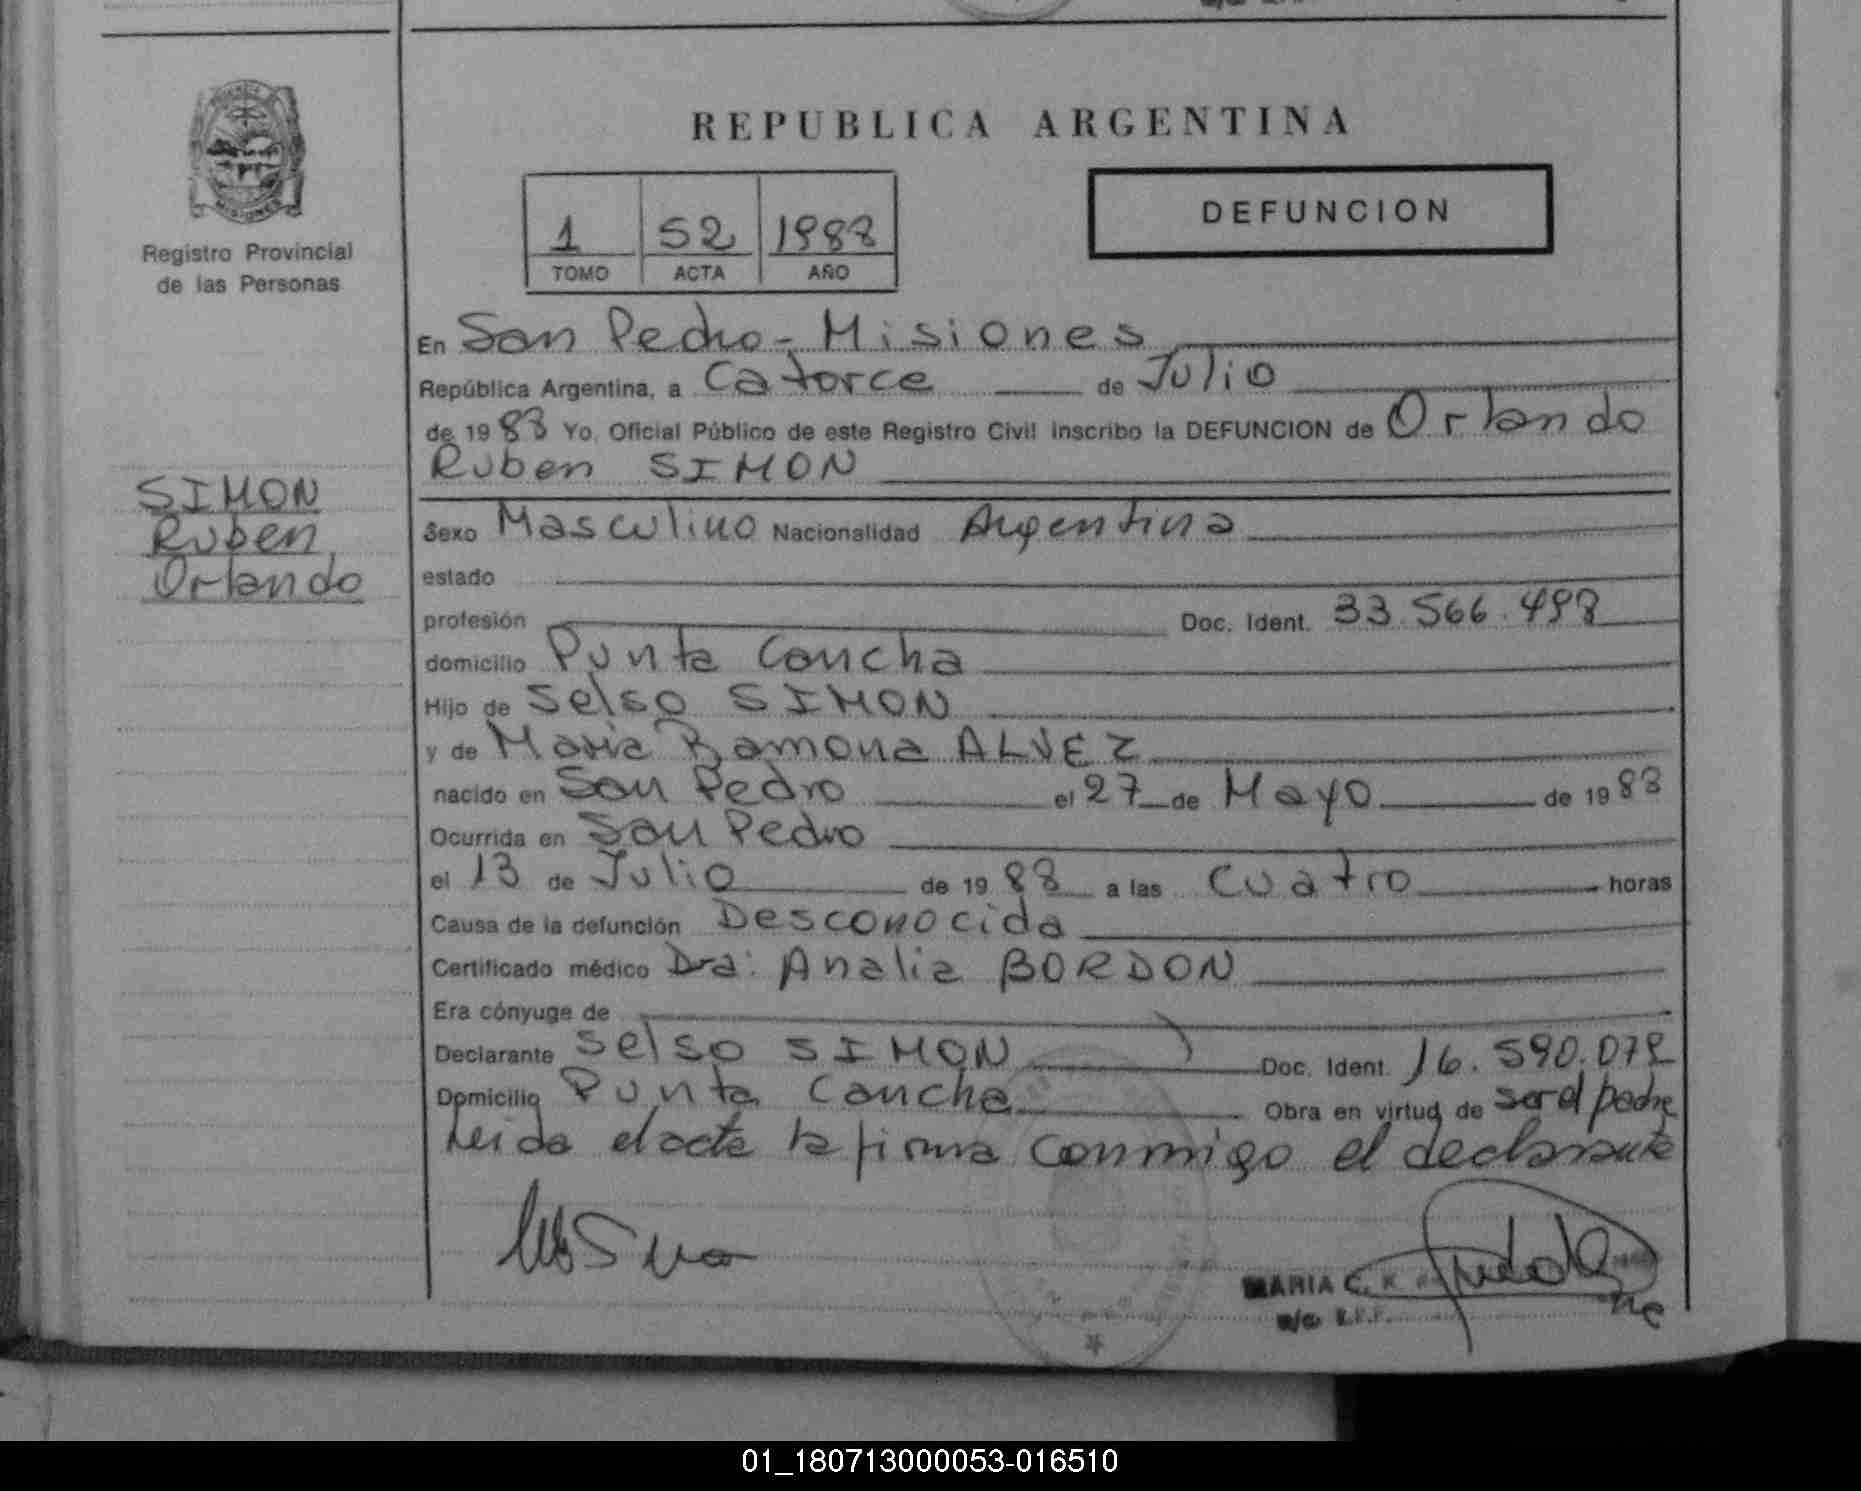 REPUBLICA ARGENTINA
Registro Provincial
de las Personas
1 52 1988
TOMO ACTA AÑO
DEFUNCION
En San Pedro - Misiones
República Argentina, a Catorce de Julio
de 1988 Yo, Oficial Público de este Registro Civil inscribo la DEFUNCION de Orlando
Ruben SIMON
SIMON
Ruben
Orlando
Sexo Masculino Nacionalidad Argentina
estado
profesión Doc. Ident. 33.566.498
domicilio Punta Cancha
Hijo de Selso SIMON
y de Maria Ramona ALVEZ
nacido en San Pedro el 27 de Mayo de 1988
Ocurrida en San Pedro
el 13 de Julio de 1988 a las Cuatro horas
Causa de la defunción Desconocida
Certificado médico Dra: Analia BORDON
Era cónyuge de
Declarante Selso SIMON Doc. Ident. 16.590.078
Domicilio Punta Cancha Obra en virtud de ser el padre
Leida el acta la firma conmigo el declarante
MARIA C.
01_180713000053-016510